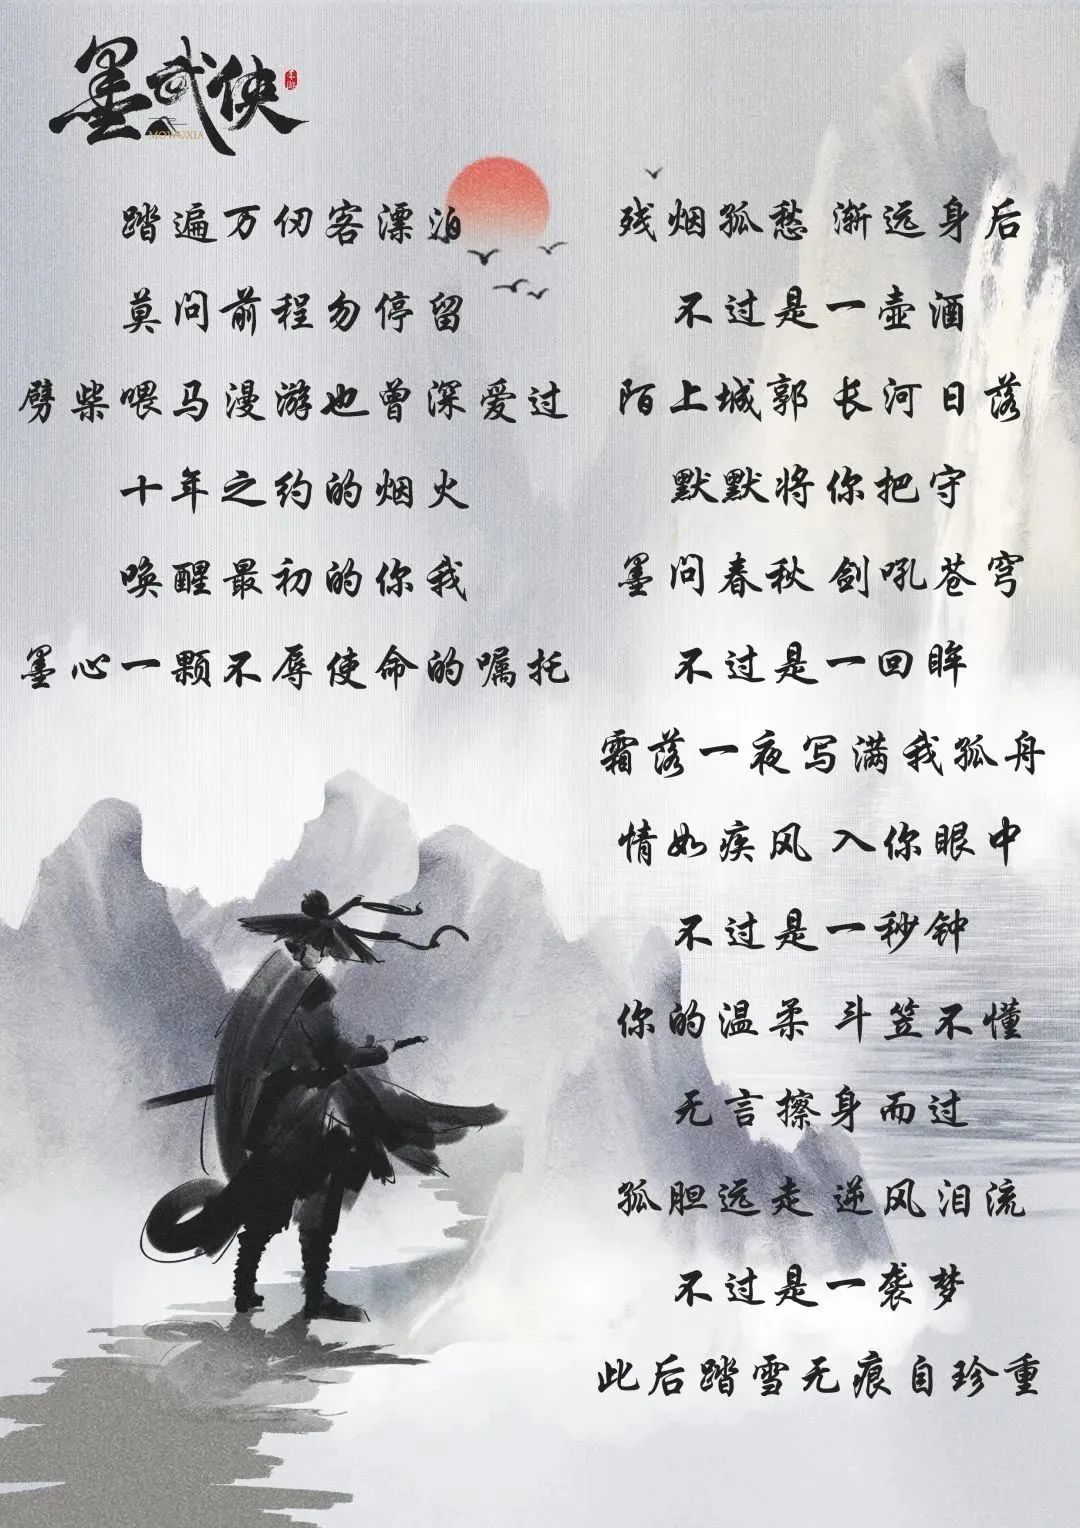 墨武侠
MOWUXIA
踏遍万仞客漂泊
莫问前程勿停留
劈柴喂马漫游也曾深爱过
十年之约的烟火
唤醒最初的你我
墨心一颗不辱使命的嘱托
残烟孤愁 渐远身后
不过是一壶酒
陌上城郭 长河日落
默默将你把守
墨问春秋 剑吼苍穹
不过是一回眸
霜落一夜写满我孤舟
情如疾风 入你眼中
不过是一秒钟
你的温柔 斗笠不懂
无言擦身而过
孤胆远走 逆风泪流
不过是一袭梦
此后踏雪无痕自珍重